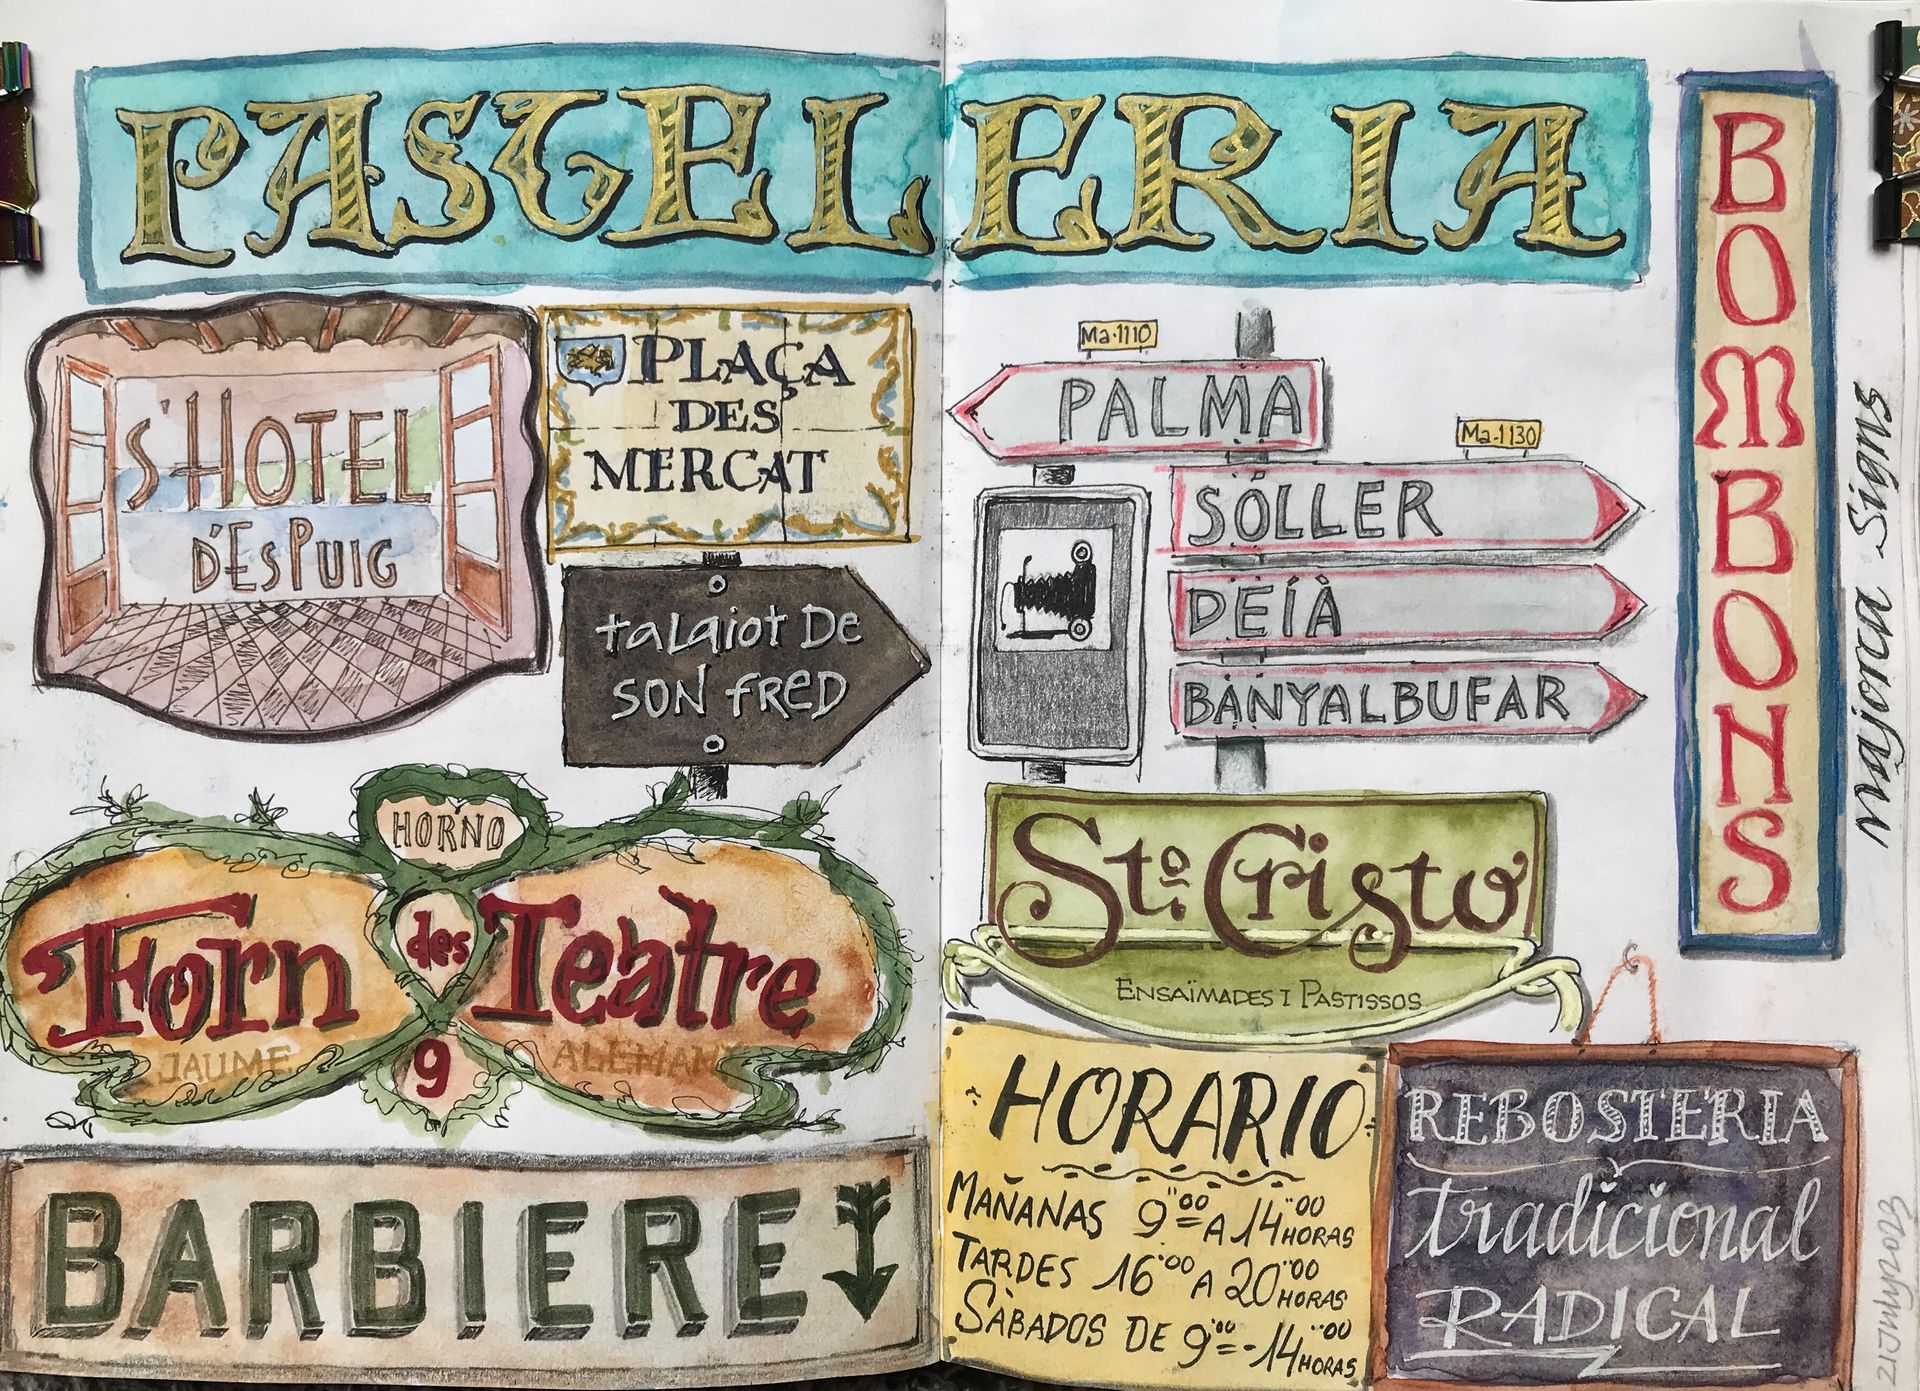 PASTELERIA
BOMBONS
S'HOTEL
D'ES PUIG
PLAÇA
DES
MERCAT
talaiot De
SON FReD
Ma-1110
PALMA
Ma-1130
SÓLLER
DEÍÀ
BANYALBUFAR
majorca Signs
HORNO
Forn des Teatre
JAUME 9 ALEMANY
Sto. Cristo
ENSAÏMADES I PASTISSOS
BARBIERE
HORARIO
MAÑANAS 9'00 A 14'00 HORAS
TARDES 16'00 A 20'00 HORAS
SÀBADOS DE 9'00 - 14'00 HORAS
REBOSTERIA
tradicional
RADICAL
21 July 2023